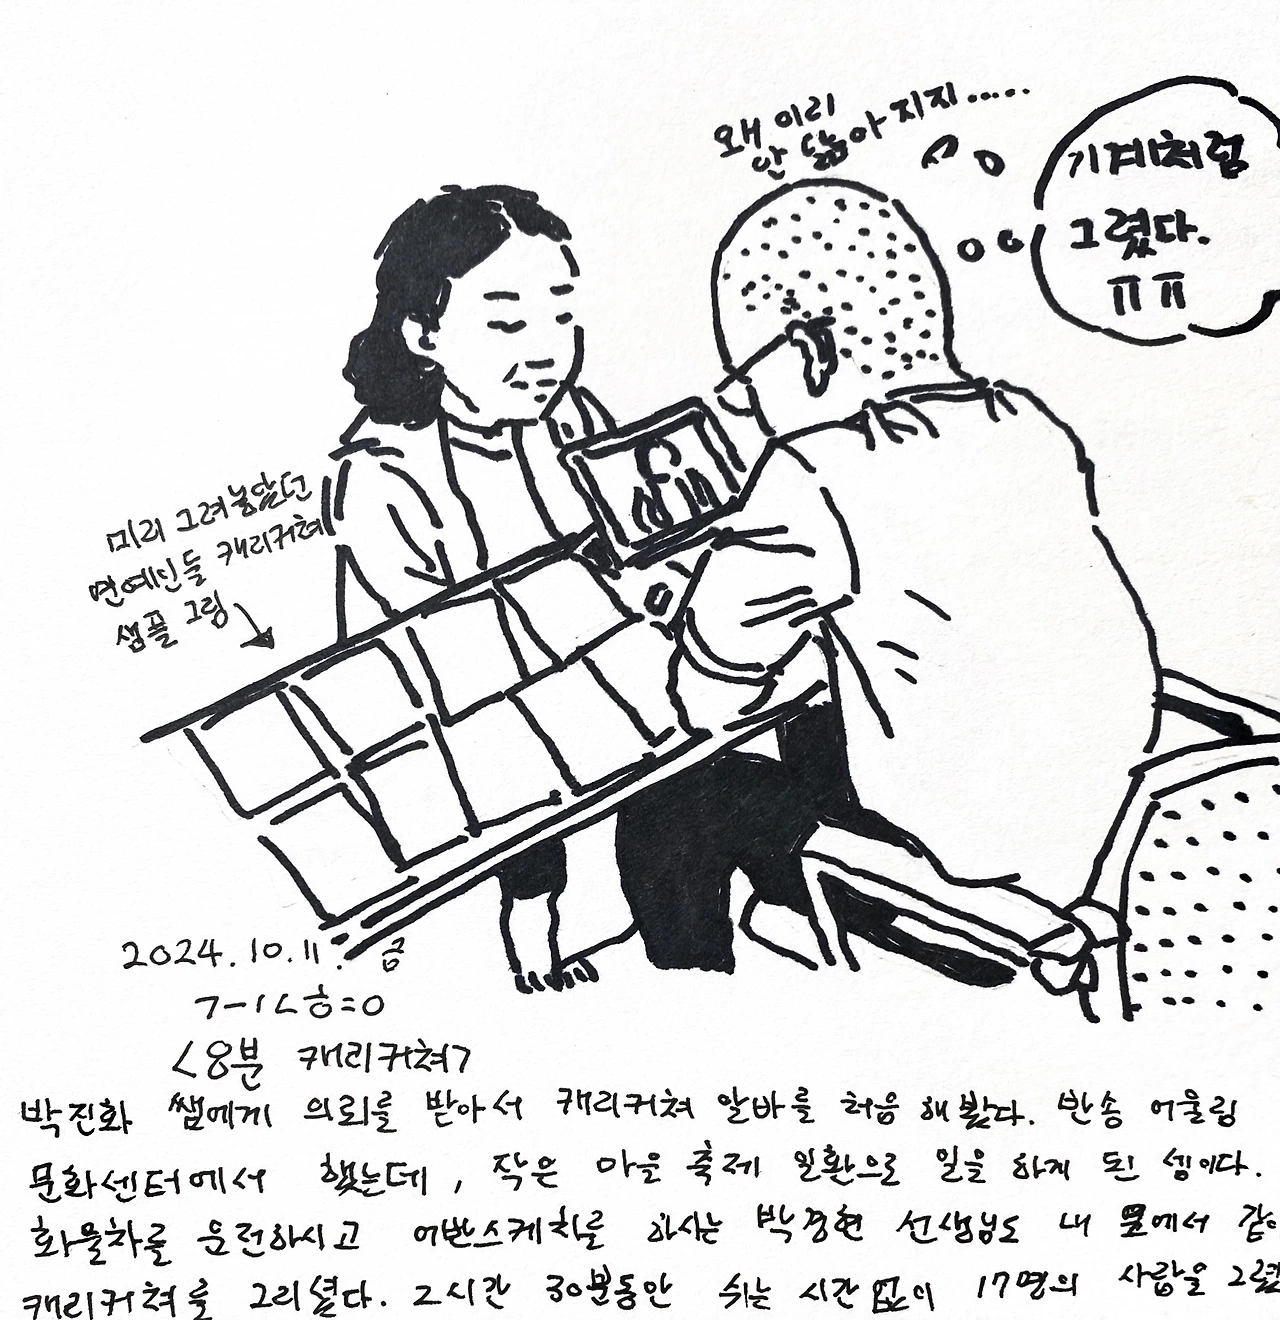 왜 이리
안 닮아 지지.....
기계처럼
그렸다.
ㅠㅠ
미리 그려놓았던
연예인들 캐리커쳐
샘플 그림
2024. 10. 11. 금
<8분 캐리커쳐>
박진화 쌤에게 의뢰를 받아서 캐리커쳐 알바를 처음 해봤다. 반송 어울림
문화센터에서 했는데, 작은 마을 축제 일환으로 일을 하게 된 셈이다.
화물차를 운전하시고 어반스케치를 하시는 박경현 선생님도 내 옆에서 같이
캐리커쳐를 그리셨다. 2시간 30분동안 쉬는 시간없이 17명의 사람을